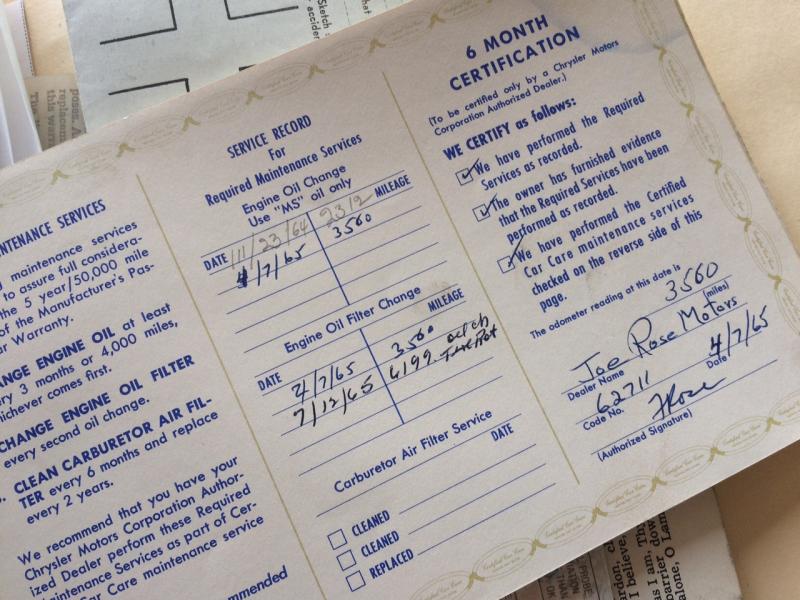 Sketch
acciden
that
poses. A
replacem
this warr
NTENANCE SERVICES
d maintenance services
to assure full considera-
the 5 year/50,000 mile
of the Manufacturer's Pas-
ar Warranty.
ANGE ENGINE OIL at least
ery 3 months or 4,000 miles,
hichever comes first.
CHANGE ENGINE OIL FILTER
every second oil change.
CLEAN CARBURETOR AIR FIL-
TER every 6 months and replace
every 2 years.
We recommend that you have your
Chrysler Motors Corporation Author-
ized Dealer perform these Required
Maintenance Services as part of Cer-
Car Care maintenance service
ommended
SERVICE RECORD
For
Required Maintenance Services
Engine Oil Change
Use "MS" oil only
DATE MILEAGE
11/23/64 2312
4/7/65 3560
Engine Oil Filter Change
DATE MILEAGE
4/7/65 3560
7/12/65 6199
Carburetor Air Filter Service
DATE
CLEANED
CLEANED
REPLACED
6 MONTH
CERTIFICATION
(To be certified only by a Chrysler Motors
Corporation Authorized Dealer.)
WE CERTIFY as follows:
We have performed the Required
Services as recorded.
The owner has furnished evidence
that the Required Services have been
performed as recorded.
We have performed the Certified
Car Care maintenance services
checked on the reverse side of this
page.
The odometer reading at this date is 3560
(miles)
Joe Rose Motors
Dealer Name
62711 4/7/65
Code No. Date
J Rose
(Authorized Signature)
Certified Car Care
ardon, c
I believe,
as I am. Th
barrier dow
alone, O Lam
PROBE